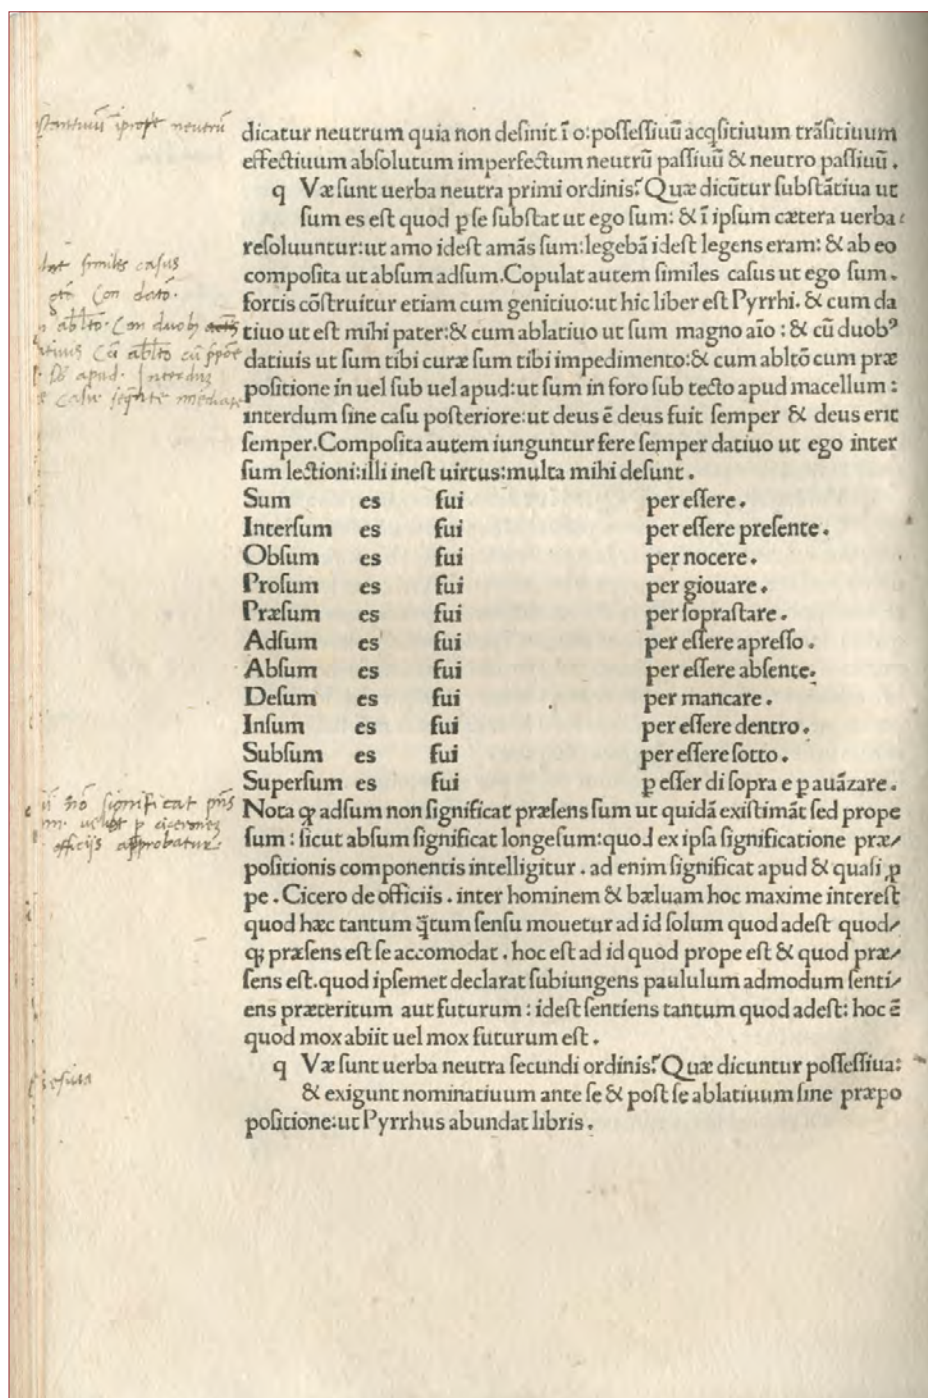 neutrũ
dicatur neutrum quia non definit ĩ o:poſſeſſiuũ acq̃ſitiuum trãſitiuum
effectiuum abſolutum imperfectum neutrũ paſſiuũ & neutro paſſiuũ .
q Væ ſunt uerba neutra primi ordinis? Quæ dicũtur ſubſtãtiua ut
ſum es eſt quod p̱ ſe ſubſtat ut ego ſum: & ĩ ipſum cætera uerba
reſoluuntur:ut amo ideſt amãs ſum:legebã ideſt legens eram: & ab eo
ſimiles caſus
compoſita ut abſum adſum.Copulat autem ſimiles caſus ut ego ſum .
Con datõ.
fortis cõſtruitur etiam cum genitiuo:ut hic liber eſt Pyrrhi. & cum da
ablt̃o. Con duobꝫ
tiuo ut eſt mihi pater:& cum ablatiuo ut ſum magno aĩo : & cũ duobꝰ
Cũ ablt̃o cũ
datiuis ut ſum tibi curæ ſum tibi impedimento:& cum abltõ cum præ
apud. Interduꝫ
poſitione in uel ſub uel apud:ut ſum in foro ſub tecto apud macellum :
interdum ſine caſu poſteriore:ut deus ẽ deus fuit ſemper & deus erit
ſemper.Compoſita autem iunguntur fere ſemper datiuo ut ego inter
ſum lectioni:illi ineſt uirtus:multa mihi deſunt .
Sum es fui per eſſere .
Interſum es fui per eſſere preſente .
Obſum es fui per nocere .
Proſum es fui per giouare .
Præſum es fui per ſopraſtare .
Adſum es fui per eſſere apreſſo .
Abſum es fui per eſſere abſente.
Deſum es fui per mancare .
Inſum es fui per eſſere dentro .
Subſum es fui per eſſere ſotto .
Superſum es fui p̱ eſſer di ſopra e p̱ auãzare .
nõ ſignificat
Nota ꝙ adſum non ſignificat præſens ſum ut quidã exiſtimãt ſed prope
p̱ ciceroneꝫ
ſum : ſicut abſum ſignificat longe ſum:quod ex ipſa ſignificatione præ/
officijs approbatur
poſitionis componentis intelligitur . ad enim ſignificat apud & quaſi ꝓ
pe . Cicero de officiis . inter hominem & bæluam hoc maxime intereſt
quod hæc tantum q̃tum ſenſu mouetur ad id ſolum quod adeſt quod/
qꝫ præſens eſt ſe accomodat . hoc eſt ad id quod prope eſt & quod præ/
ſens eſt.quod ipſemet declarat ſubiungens paululum admodum ſenti/
ens præteritum aut futurum : ideſt ſentiens tantum quod adeſt: hoc ẽ
quod mox abiit uel mox futurum eſt .
q Væ ſunt uerba neutra ſecundi ordinis? Quæ dicuntur poſſeſſiua:
& exigunt nominatiuum ante ſe & poſt ſe ablatiuum ſine præpo
poſitione:ut Pyrrhus abundat libris .